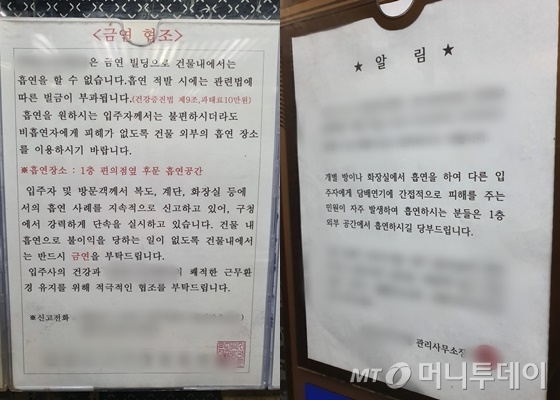 <금연 협조>
은 금연 빌딩으로 건물내에서는
흡연을 할 수 없습니다.흡연 적발 시에는 관련법에
따른 벌금이 부과됩니다.(건강증진법 제9조,과태료10만원)
흡연을 원하시는 입주자께서는 불편하시더라도
비흡연자에게 피해가 없도록 건물 외부의 흡연 장소
를 이용하시기 바랍니다.
※흡연장소 : 1층 편의점옆 후문 흡연공간
입주자 및 방문객께서 복도, 계단, 화장실 등에
서의 흡연 사례를 지속적으로 신고하고 있어, 구청
에서 강력하게 단속을 실시하고 있습니다. 건물 내
흡연으로 불이익을 당하는 일이 없도록 건물내에서
는 반드시 금연을 부탁드립니다.
입주사의 건강과 쾌적한 근무환
경 유지를 위해 적극적인 협조를 부탁드립니다.
※신고전화
★ 알 림 ★
개별 방이나 화장실에서 흡연을 하여 다른 입
주자에게 담배연기에 간접적으로 피해를 주는
민원이 자주 발생하여 흡연하시는 분들은 1층
외부 공간에서 흡연하시길 당부드립니다.
관리사무소장
MT 머니투데이